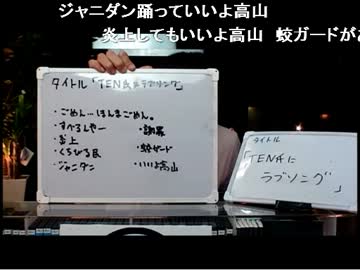 ジャニダン踊っていいよ高山
炎上してもいいよ高山 蚊ガードがあ
タイトル「TENGAにラブソング」
・ごめん…ほんまごめん。
・すべるんやー
・炎上
・くちびる民
・ジャニダン
・謝罪
・蚊ガード
・いいよ高山
タイトル
「TEN氏に
ラブソング」